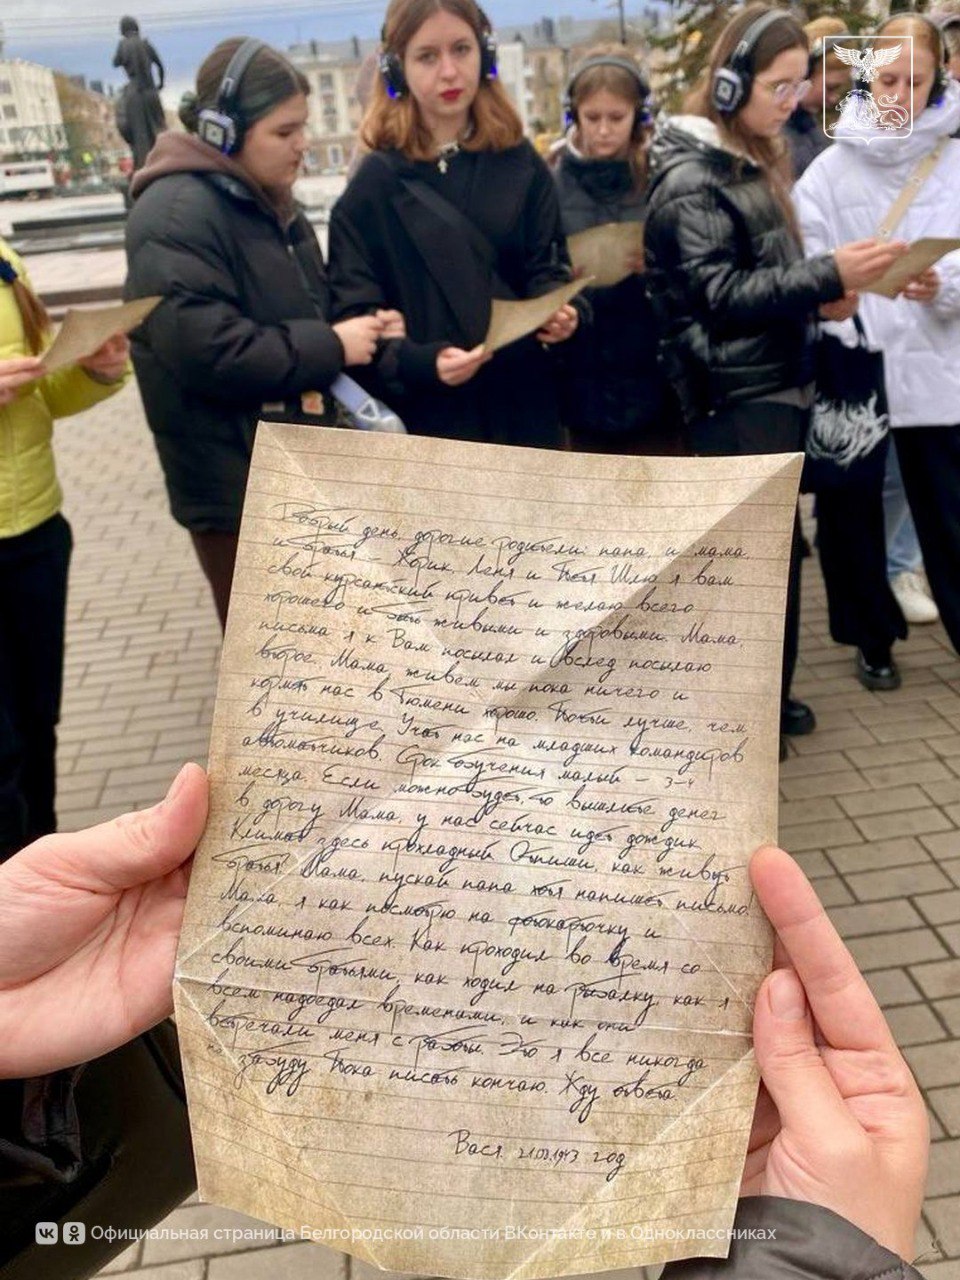 Добрый день, дорогие родители: папа, и мама,
и братья – Жорик, Леня и Петя. Шлю я вам
свой курсантский привет и желаю всего
хорошего и быть живыми и здоровыми. Мама,
письма я к Вам посылал и вслед посылаю
второе. Мама, живем мы пока ничего и
кормят нас в Тюмени хорошо. Почти лучше, чем
в училище, Учат нас на младших командиров
автоматчиков. Срок обучения малый – 3-4
месяца. Если можно будет, то вышлите денег
в дорогу. Мама, у нас сейчас идет дождик
Климат здесь прохладный. Отпиши, как живут
братья? Мама, пускай папа хотя напишет письмо!
Мама, я как посмотрю на фотокарточку и
вспоминаю всех. Как проходил во время со
своими братьями, как ходил на рыбалку, как я
всем надоедал временами, и как они
встречали меня с работы. Это я все никогда
не забуду. Пока писать кончаю. Жду ответа.
Вася. 21.03.1943 год
Официальная страница Белгородской области ВКонтакте и в Одноклассниках